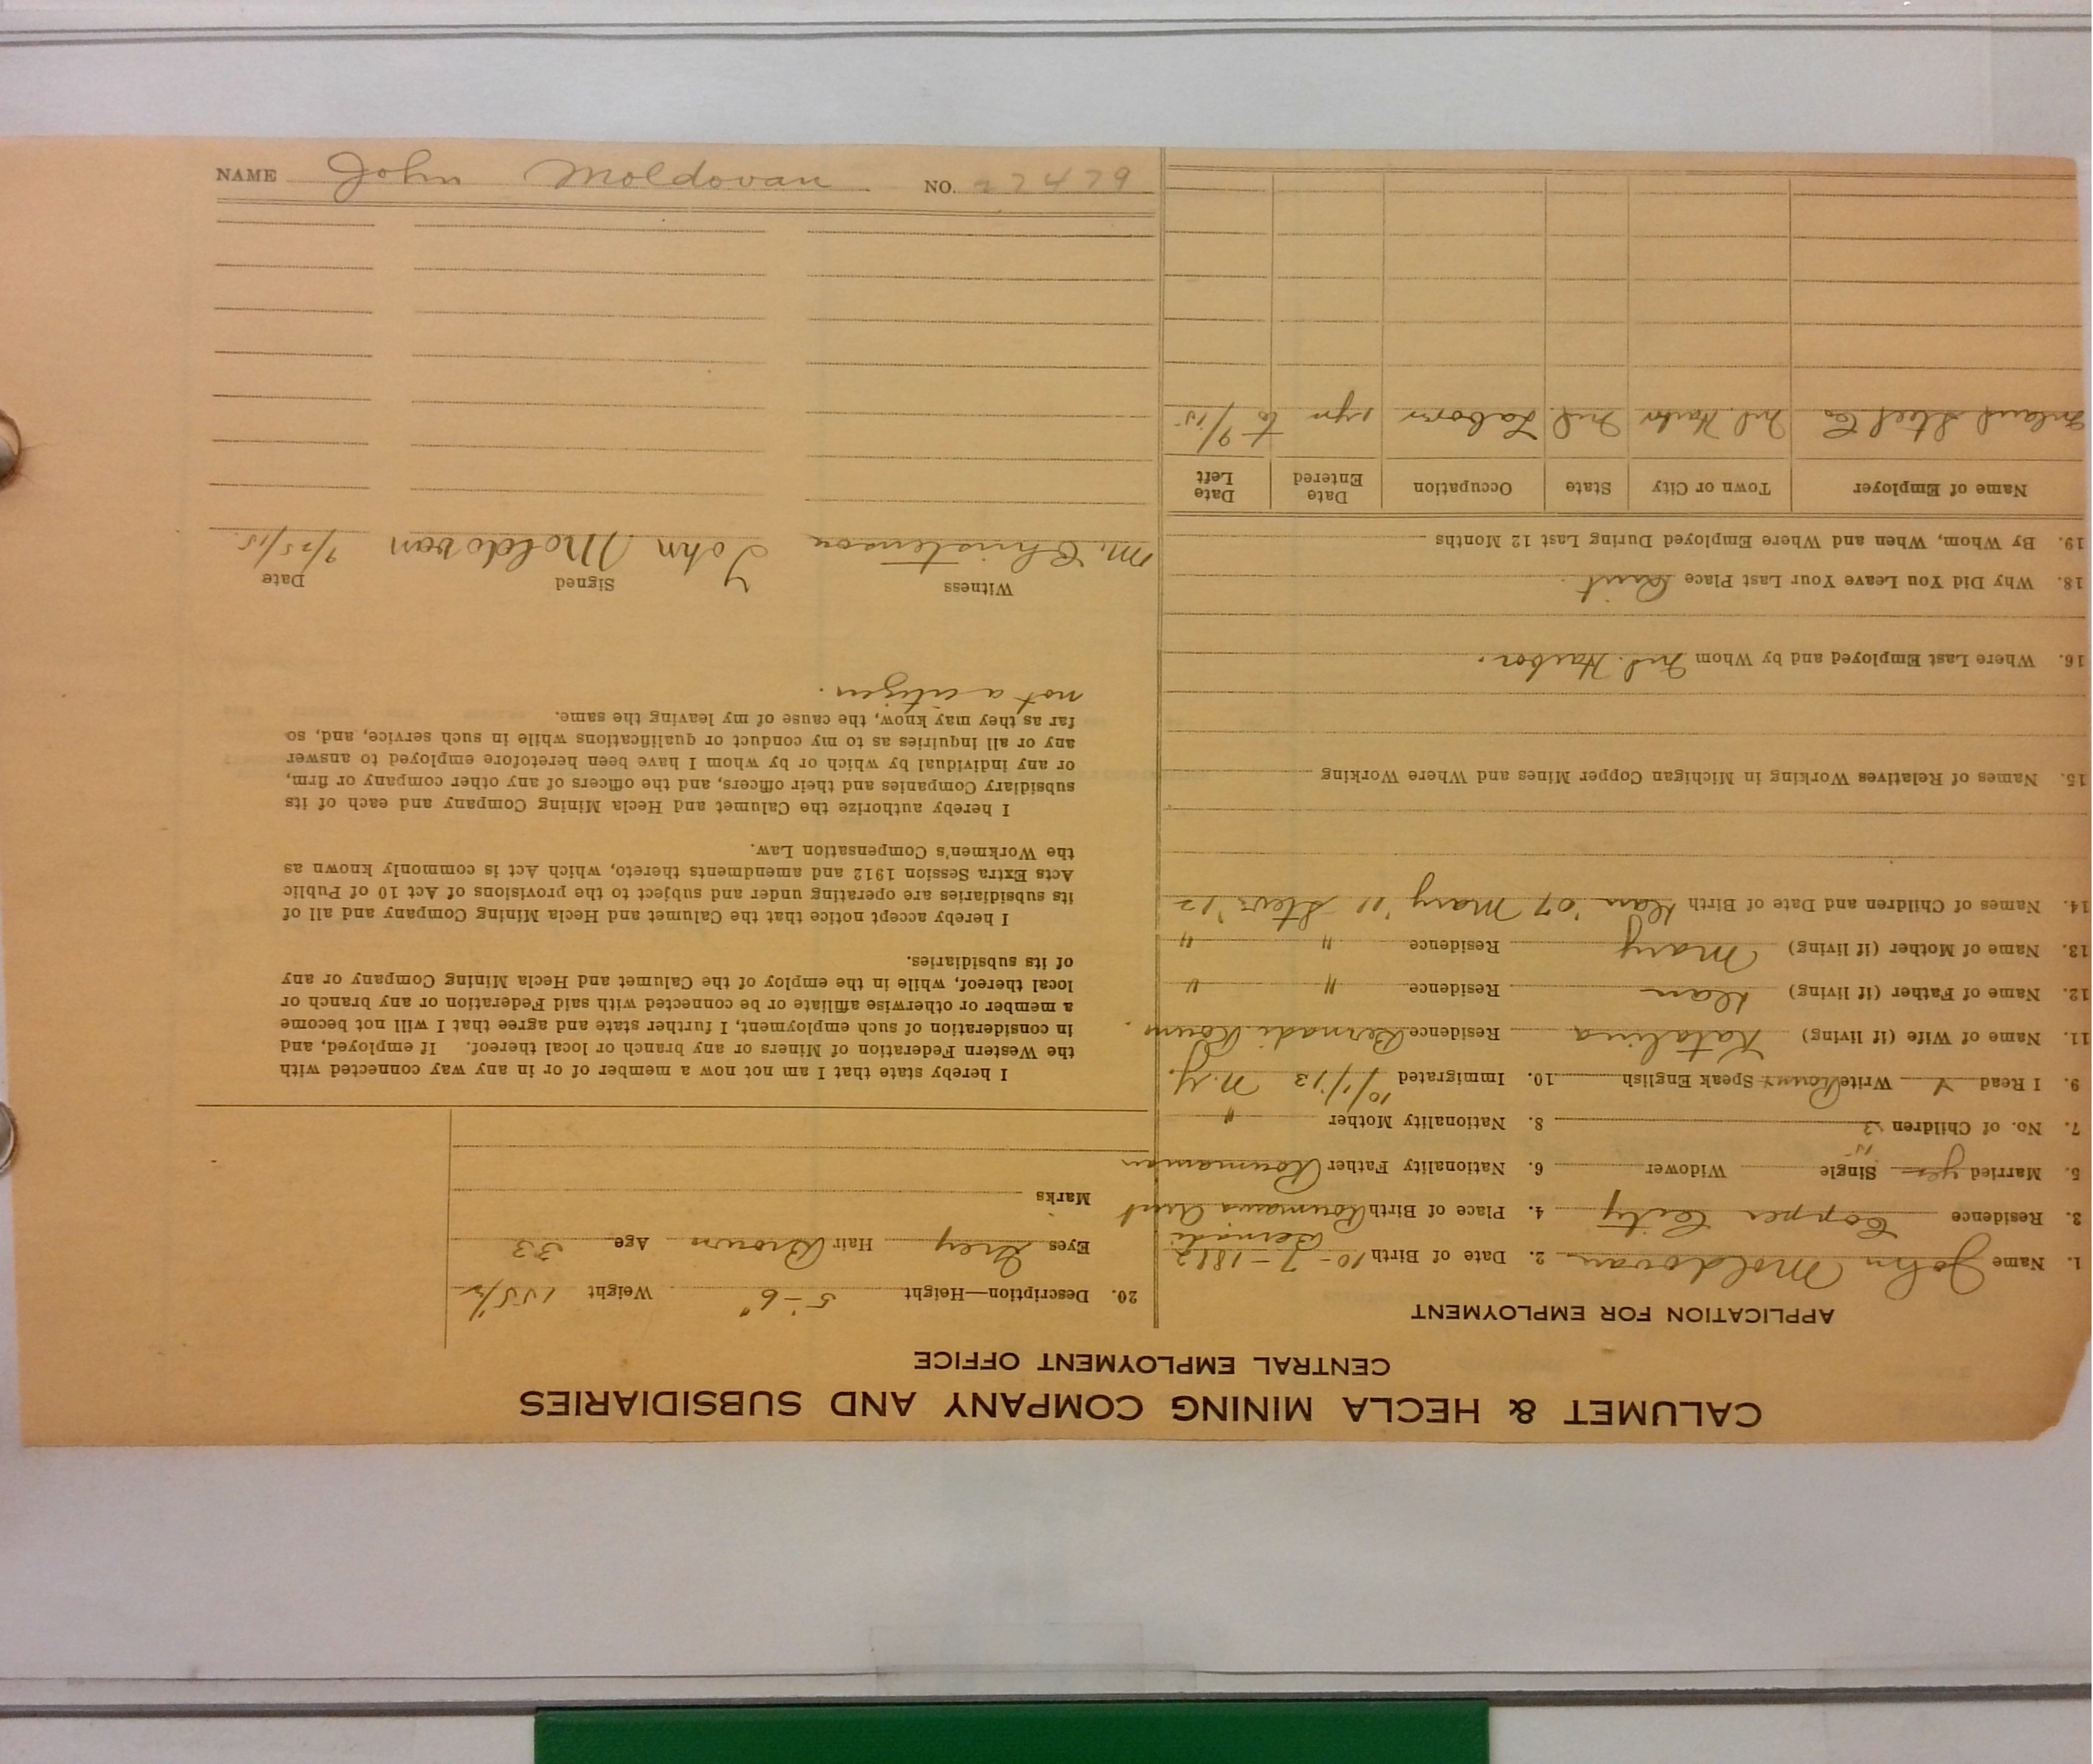 CALUMET & HECLA MINING COMPANY AND SUBSIDIARIES
CENTRAL EMPLOYMENT OFFICE
APPLICATION FOR EMPLOYMENT
1. Name John Moldovan 2. Date of Birth 10-7-1882
Bernadi
3. Residence Copper City 4. Place of Birth Roumania
5. Married yes Single Widower 6. Nationality Father Roumanian
7. No. of Children 3 8. Nationality Mother "
9. I Read Write Speak English 10. Immigrated 10/1/13 N.Y.
11. Name of Wife (if living) Katalina Residence Bernadi Roum
12. Name of Father (if living) Residence " "
13. Name of Mother (if living) Mary Residence " "
14. Names of Children and Date of Birth '07 Mary '11 Steve '12
15. Names of Relatives Working in Michigan Copper Mines and Where Working
16. Where Last Employed and by Whom Ind. Harbor.
18. Why Did You Leave Your Last Place Quit
19. By Whom, When and Where Employed During Last 12 Months
Name of Employer Town or City State Occupation Date Entered Date Left
Inland Steel Co Ind. Harbor Ind. Laborer 1 yr to 9/15
20. Description—Height 5-6" Weight 155 1/2
Eyes Grey Hair Brown Age 33
Marks
I hereby state that I am not now a member of or in any way connected with
the Western Federation of Miners or any branch or local thereof. If employed, and
in consideration of such employment, I further state and agree that I will not become
a member or otherwise affiliate or be connected with said Federation or any branch or
local thereof, while in the employ of the Calumet and Hecla Mining Company or any
of its subsidiaries.
I hereby accept notice that the Calumet and Hecla Mining Company and all of
its subsidiaries are operating under and subject to the provisions of Act 10 of Public
Acts Extra Session 1912 and amendments thereto, which Act is commonly known as
the Workmen's Compensation Law.
I hereby authorize the Calumet and Hecla Mining Company and each of its
subsidiary Companies and their officers, and the officers of any other company or firm,
or any individual by which or by whom I have been heretofore employed to answer
any or all inquiries as to my conduct or qualifications while in such service, and, so
far as they may know, the cause of my leaving the same.
not a citizen.
Witness Signed Date
M. Christenson John Moldovan 9/25/15.
NAME John Moldovan NO. 27479